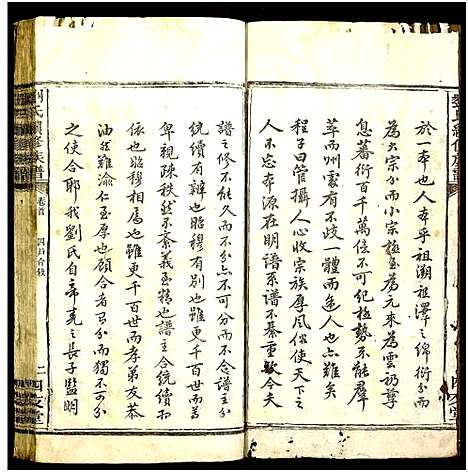 於一本也人本乎祖溯祖澤之綿衍分
為大宗分而小宗極至為元來為雲礽孳
息蕃衍百千萬億不可紀極勢不能聚
萃而州處有不歧一體而途人也亦難矣
曰管攝人心收宗族厚風俗使天下之
人不忘本源在明譜系不綦重歟今夫
譜之修不能久而不分亦不可分而不合譜
統續有辨也昭穆有別也雖更千百世而尊
卑親疎秩然不紊義至精也譜主合統續相
依也昭穆相屬也雖更千百世而子弟友恭
油然難渝仁至厚也顧合者易分而同
之使合耶我劉氏自帝堯之長子監明
劉氏續修族譜
卷首
二
四友堂